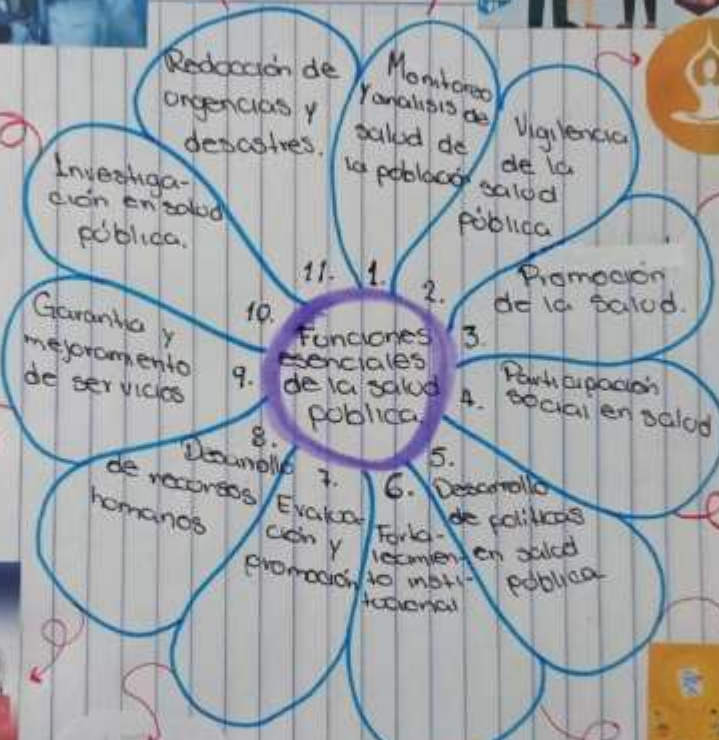 Funciones
esenciales
de la salud
pública.
1.
Monitoreo
y analisis de
salud de
la población
2.
Vigilencia
de la
salud
pública
3.
Promoción
de la salud.
4.
Participación
social en salud
5.
Desarrollo
de políticas
en salud
pública
6.
Forta-
lecimien-
to insti-
tucional
7.
Evalua-
ción y
promoción
8.
Desarrollo
de recursos
humanos
9.
Garantia y
mejoramiento
de servicios
10.
Investiga-
ción en salud
pública.
11.
Redacción de
urgencias y
desastres.